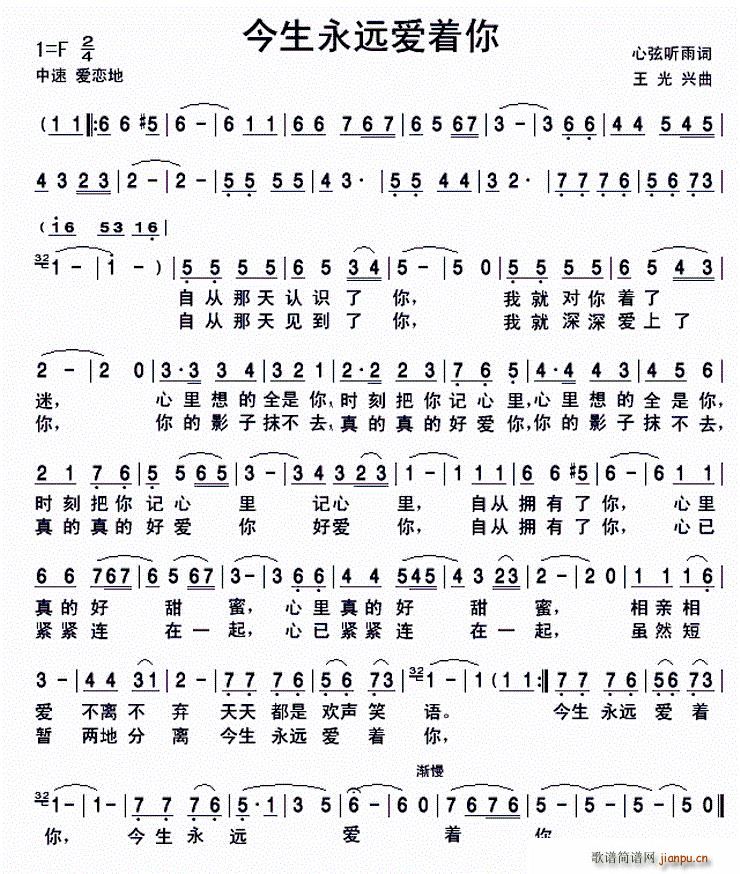 今生永远爱着你
1=F 2/4
中速 爱恋地
心弦听雨词
王光兴曲
(1 1|:6 6 #5|6 -|6 1 1|6 6 7 6 7|6 5 6 7|3 -|3 6 6|4 4 5 4 5|
4 3 2 3|2 -|2 -|5 5 5 5|4 3·|5 5 4 4|3 2·|7 7 7 6|5 6 7 3|
(i 6 5 3 1 6|
32 1 -|i -)|5 5 5 5|6 5 3 4|5 -|5 0|5 5 5 5|6 5 4 3|
自从那天认识了 你， 我就对你着了
自从那天见到了 你， 我就深深爱上了
2 -|2 0|3·3 3 4|3 2 1|2·2 2 3|7 6 5|4·4 4 3|4 5 6|
迷， 心里想的全是你，时刻把你记心里，心里想的全是你，
你， 你的影子抹不去，真的真的好爱你，你的影子抹不去，
2 1 7 6|5 5 6 5|3 -|3 4 3 2 3|1 -|1 1 1|6 6 #5|6 -|6 1 1|
时刻把你记心 里 记心 里， 自从拥有了你， 心里
真的真的好爱 你 好爱 你， 自从拥有了你， 心已
6 6 7 6 7|6 5 6 7|3 -|3 6 6|4 4 5 4 5|4 3 2 3|2 -|2 0|1 1 1 6|
真的好 甜 蜜， 心里真的好 甜 蜜， 相亲相
紧紧连 在一 起，心已紧紧连 在一 起， 虽然短
3 -|4 4 3 1|2 -|7 7 7 6|5 6 7 3|32 1 -|1 (1 1:|7 7 7 6|5 6 7 3|
爱 不离不 弃 天天都是欢声笑 语。 今生永远爱着
暂 两地分 离 今生永远爱着 你，
渐慢
32 1 -|1 -|7 7 7 6|5·1|3 5|6 -|6 0|7 6 7 6|5 -|5 -|5 0‖
你， 今生永 远 爱 着 你
歌谱简谱网 jianpu.cn